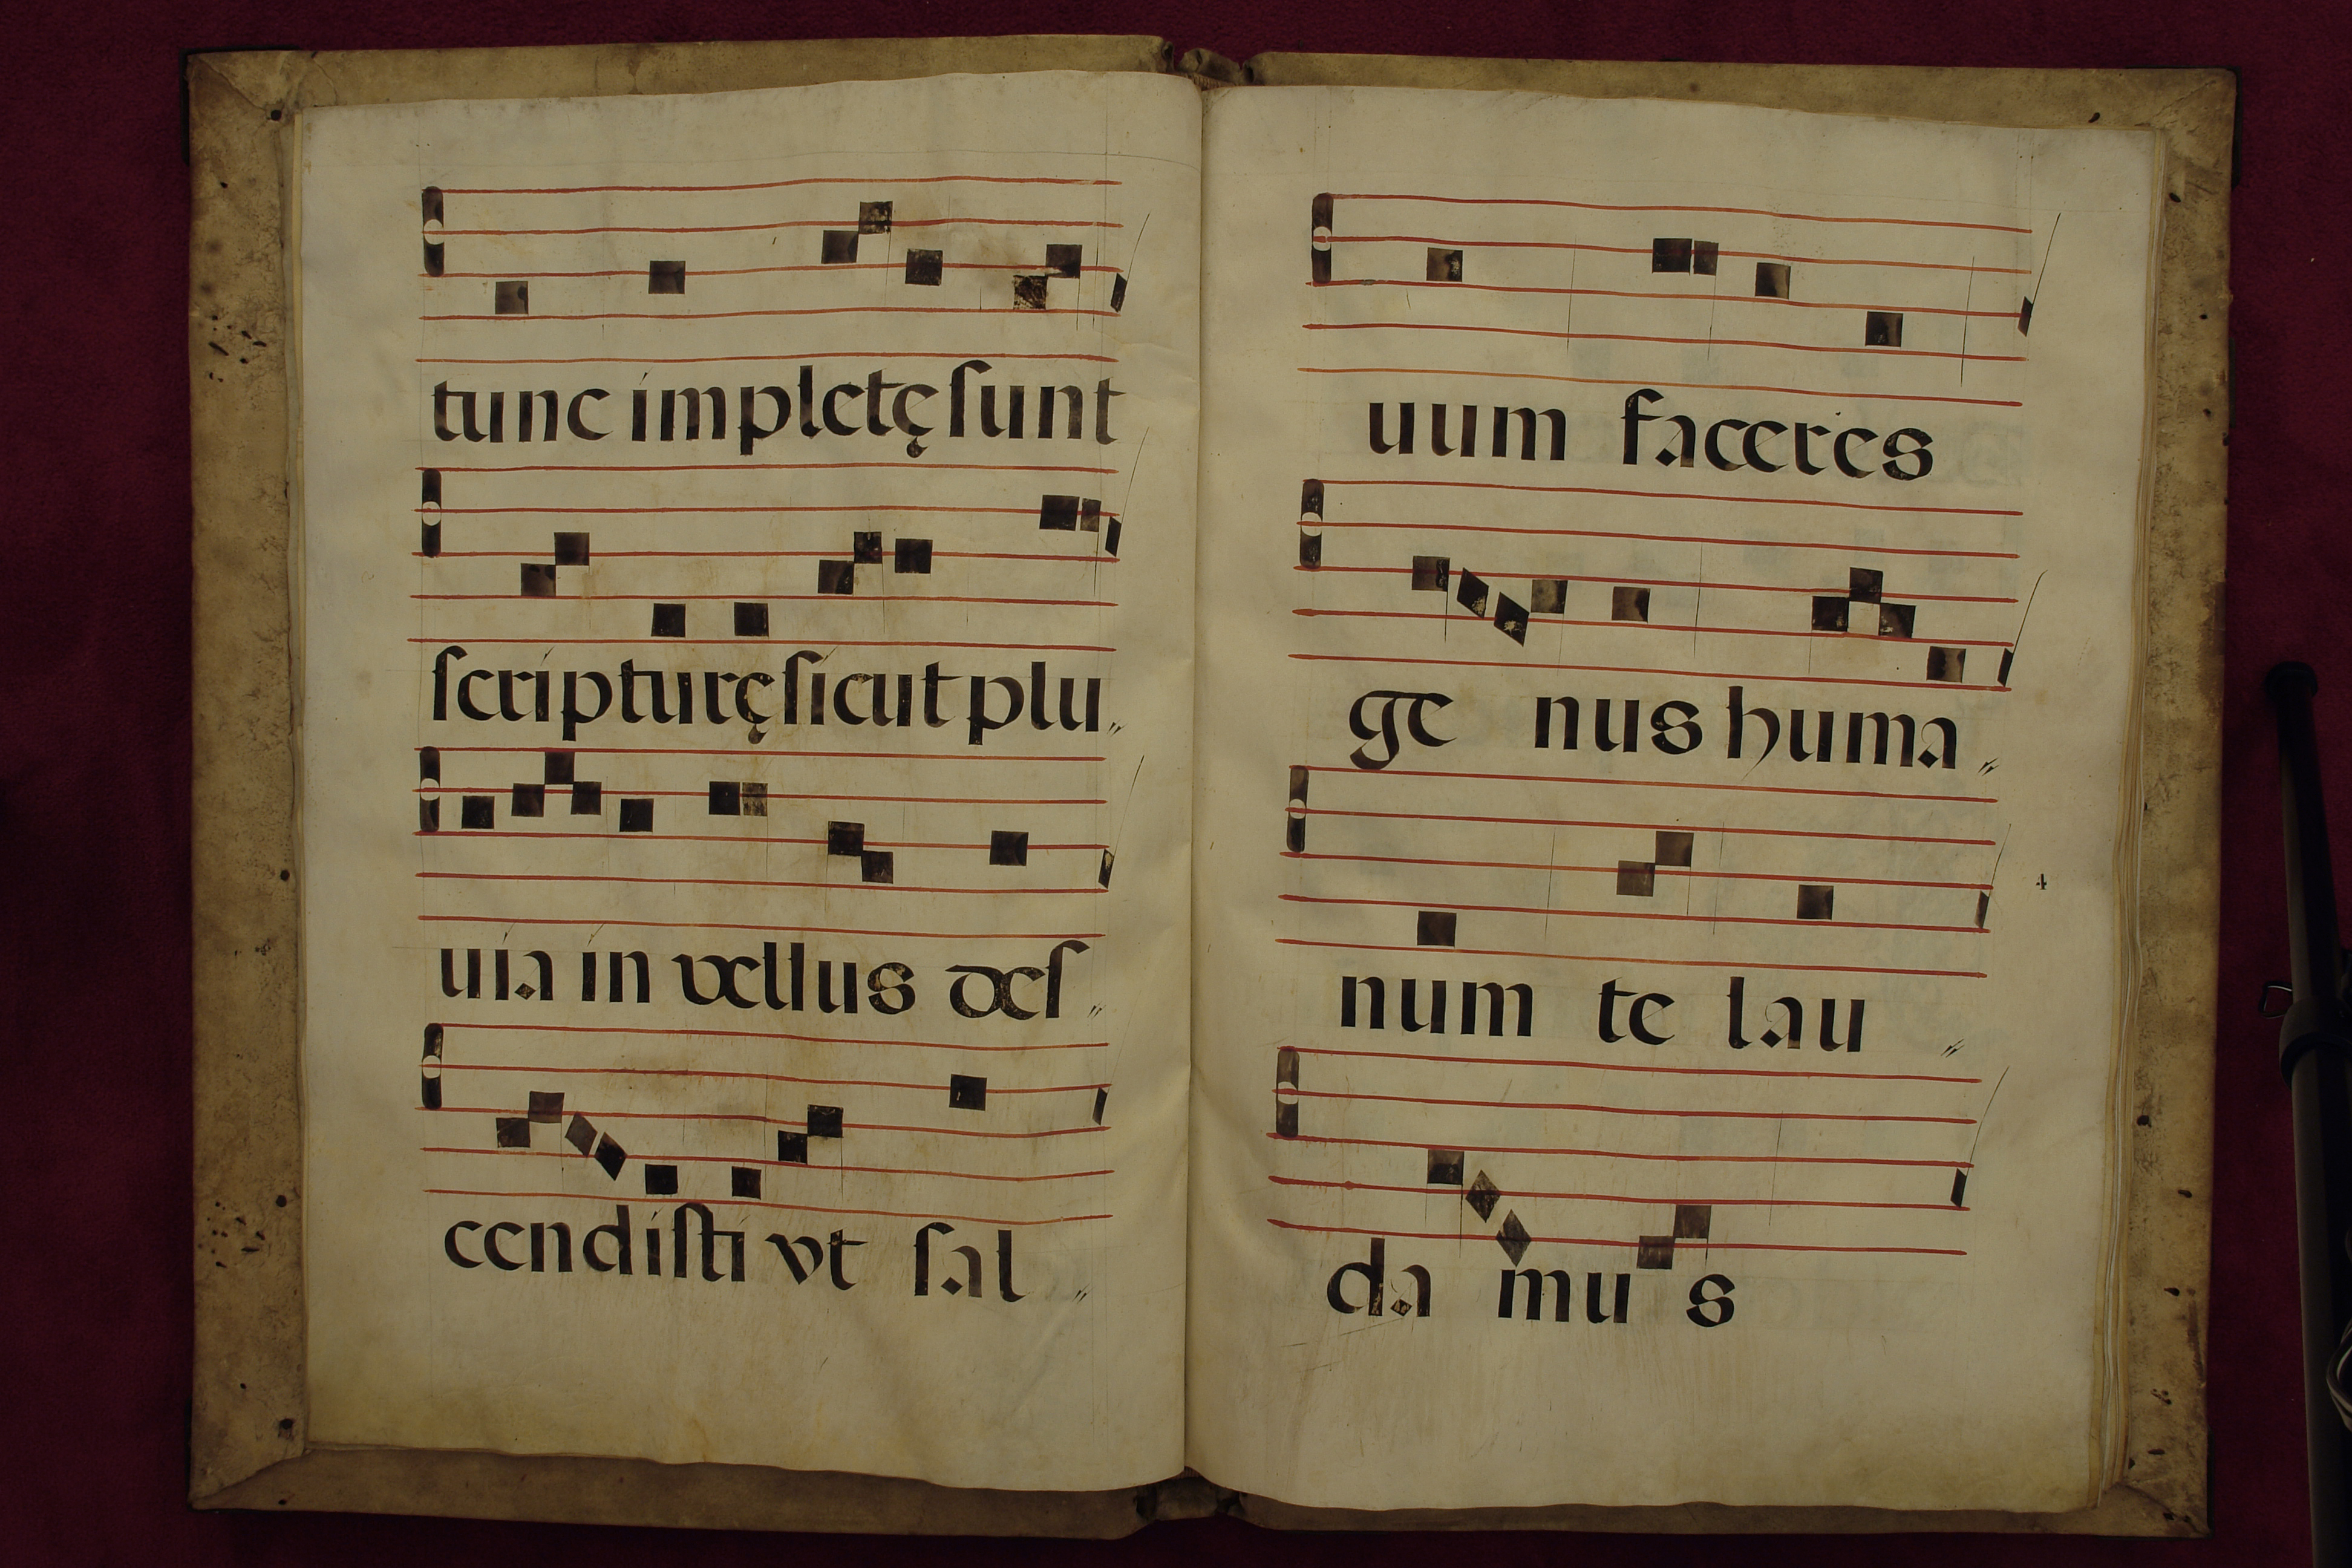 tunc impletę ſunt
ſcripturę ſicut plu〃
uia in vellus deſ〃
cendiſti vt ſal〃
uum faceres
ge nus huma〃
4
num te lau〃
da mu s